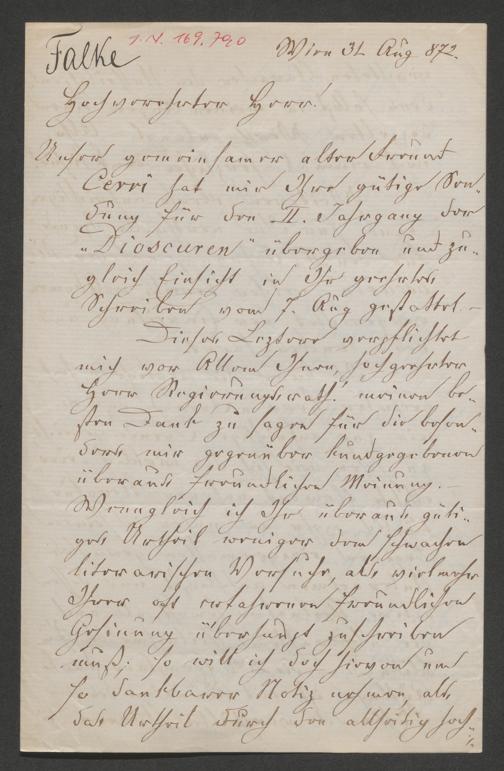 Falke
I.N. 169.790
Wien 31 Aug 872.
Hochverehrter Herr!
Unser gemeinsamer alter Freund
Cerri hat mir Ihre gütige Sen-
dung für den II. Jahrgang der
"Dioscuren" übergeben und zu-
gleich Einsicht in Ihr geehrtes
Schreiben vom 7. Aug gestattet. –
Dieses Leztere verpflichtet
mich vor Allem Ihnen, hochgeehrter
Herr Regierungsrath! meinen be-
sten Dank zu sagen für die beson-
ders mir gegenüber kundgegebenen
überaus freundlichen Meinung. –
Wenngleich ich Ihr überaus güti-
ges Urtheil weniger dem schwachen
literarischen Versuche, als vielmehr
Ihrer oft erfahrenen freundlichen
Gesinung überhaupt zuschreiben
muß; so will ich doch hievon um
so dankbarer Notiz nehmen, als
das Urtheil durch den allseitig hoch-